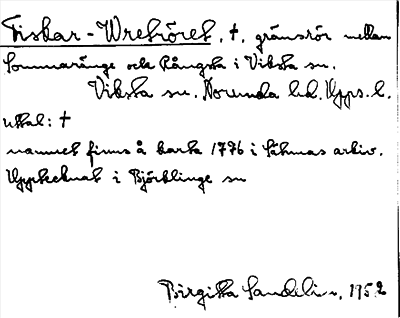 Fiskar-Wrekröret, †, gränsrör mellan
Sommaränge och Rångsta i Viksta sn.
Viksta sn. Norunda hd. Upps. l.
uttal: †
namnet finns å karta 1776 i Låtmas arkiv.
Upptecknat i Björklinge sn
Birgitta Sandelin, 1952